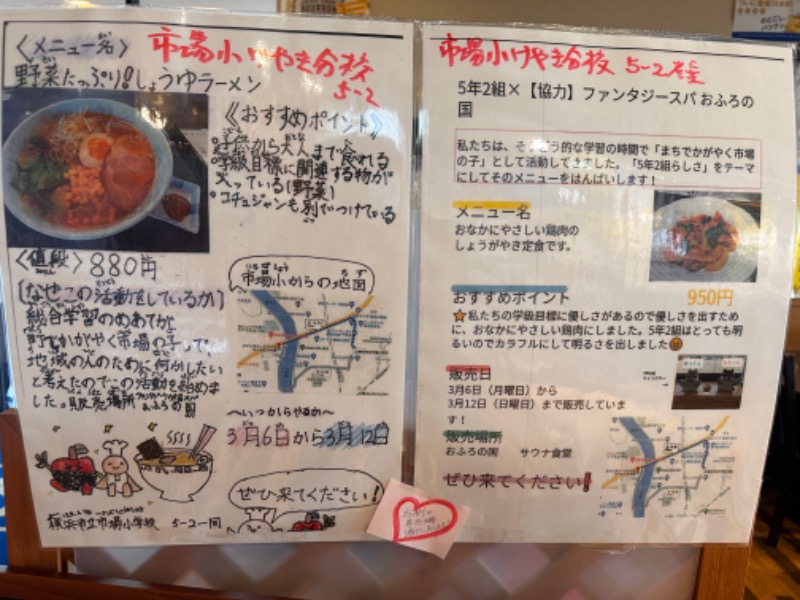 〈メニュー名〉
市場小けやき分校
5-2
野菜たっぷり!しょうゆラーメン
《おすすめポイント》
子供から大人まで食れる
学級目標に関連する物が
入っている(野菜)
コチュジャンも別だつけている
〈値段〉880円
(なぜこの活動をしているか)
総合学習のめあてが
町でかがやく市場の子って、
地域の人のために何かしたい
と考えたのでこの活動を始めま
した。販売場所
おふろの国
市場小からの地図
〜いつからやるか〜
3月6日から3月12日
ぜひ来てください!
横浜市立市場小学校 5-2一同
市場小けやき分校 5-2
5年2組×【協力】ファンタジースパ おふろの
国
私たちは、そうごう的な学習の時間で「まちでかがやく市場
の子」として活動してきました。「5年2組らしさ」をテーマ
にしてそのメニューをはんばいします!
メニュー名
おなかにやさしい鶏肉の
しょうがやき定食です。
950円
おすすめポイント
私たちの学級目標に優しさがあるので優しさを出すため
に、おなかにやさしい鶏肉にしました。5年2組はとっても明
るいのでカラフルにして明るさを出しました
販売日
3月6日（月曜日）から
3月12日（日曜日）まで販売していま
す!
販売場所
おふろの国 サウナ食堂
ぜひ来てください!